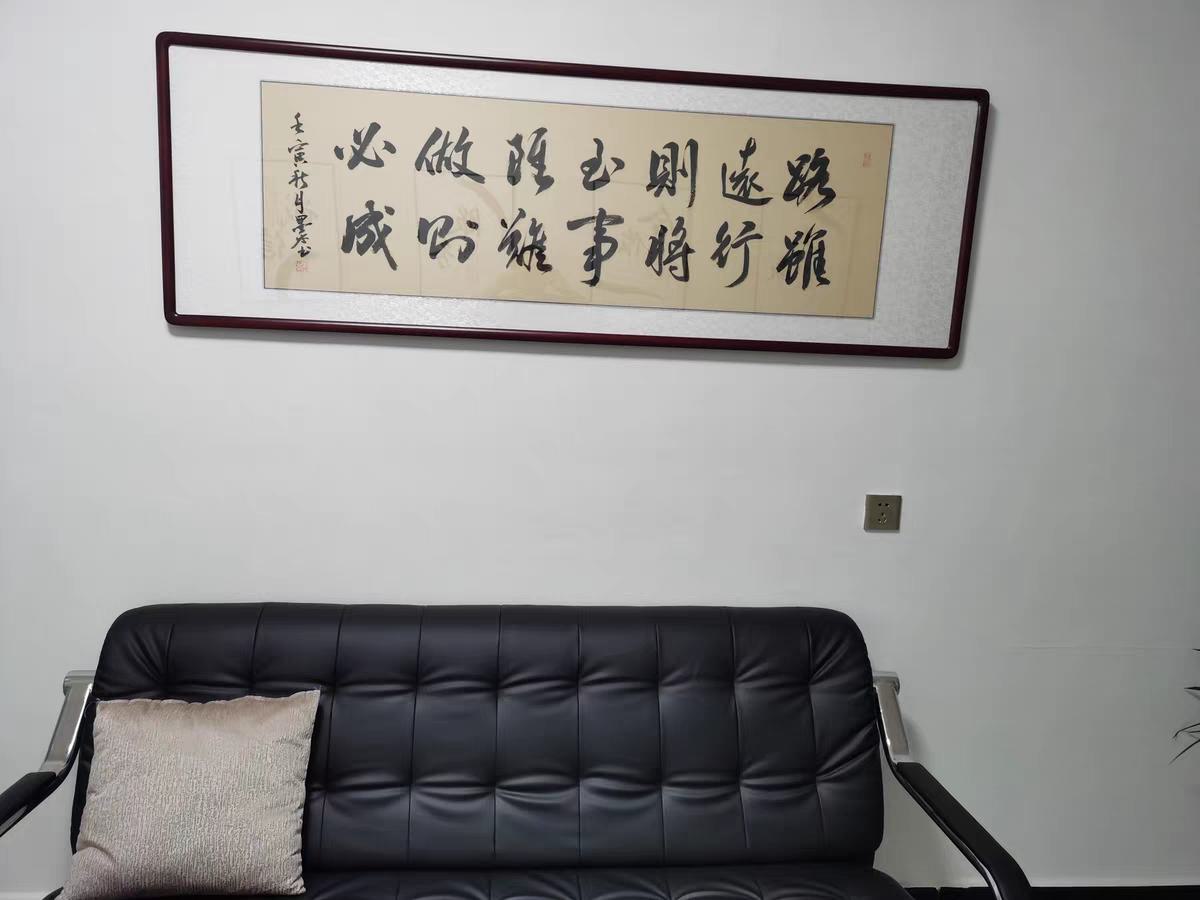 路雖
遠行
則將
至事
雖難
做則
必成
壬寅秋月墨书